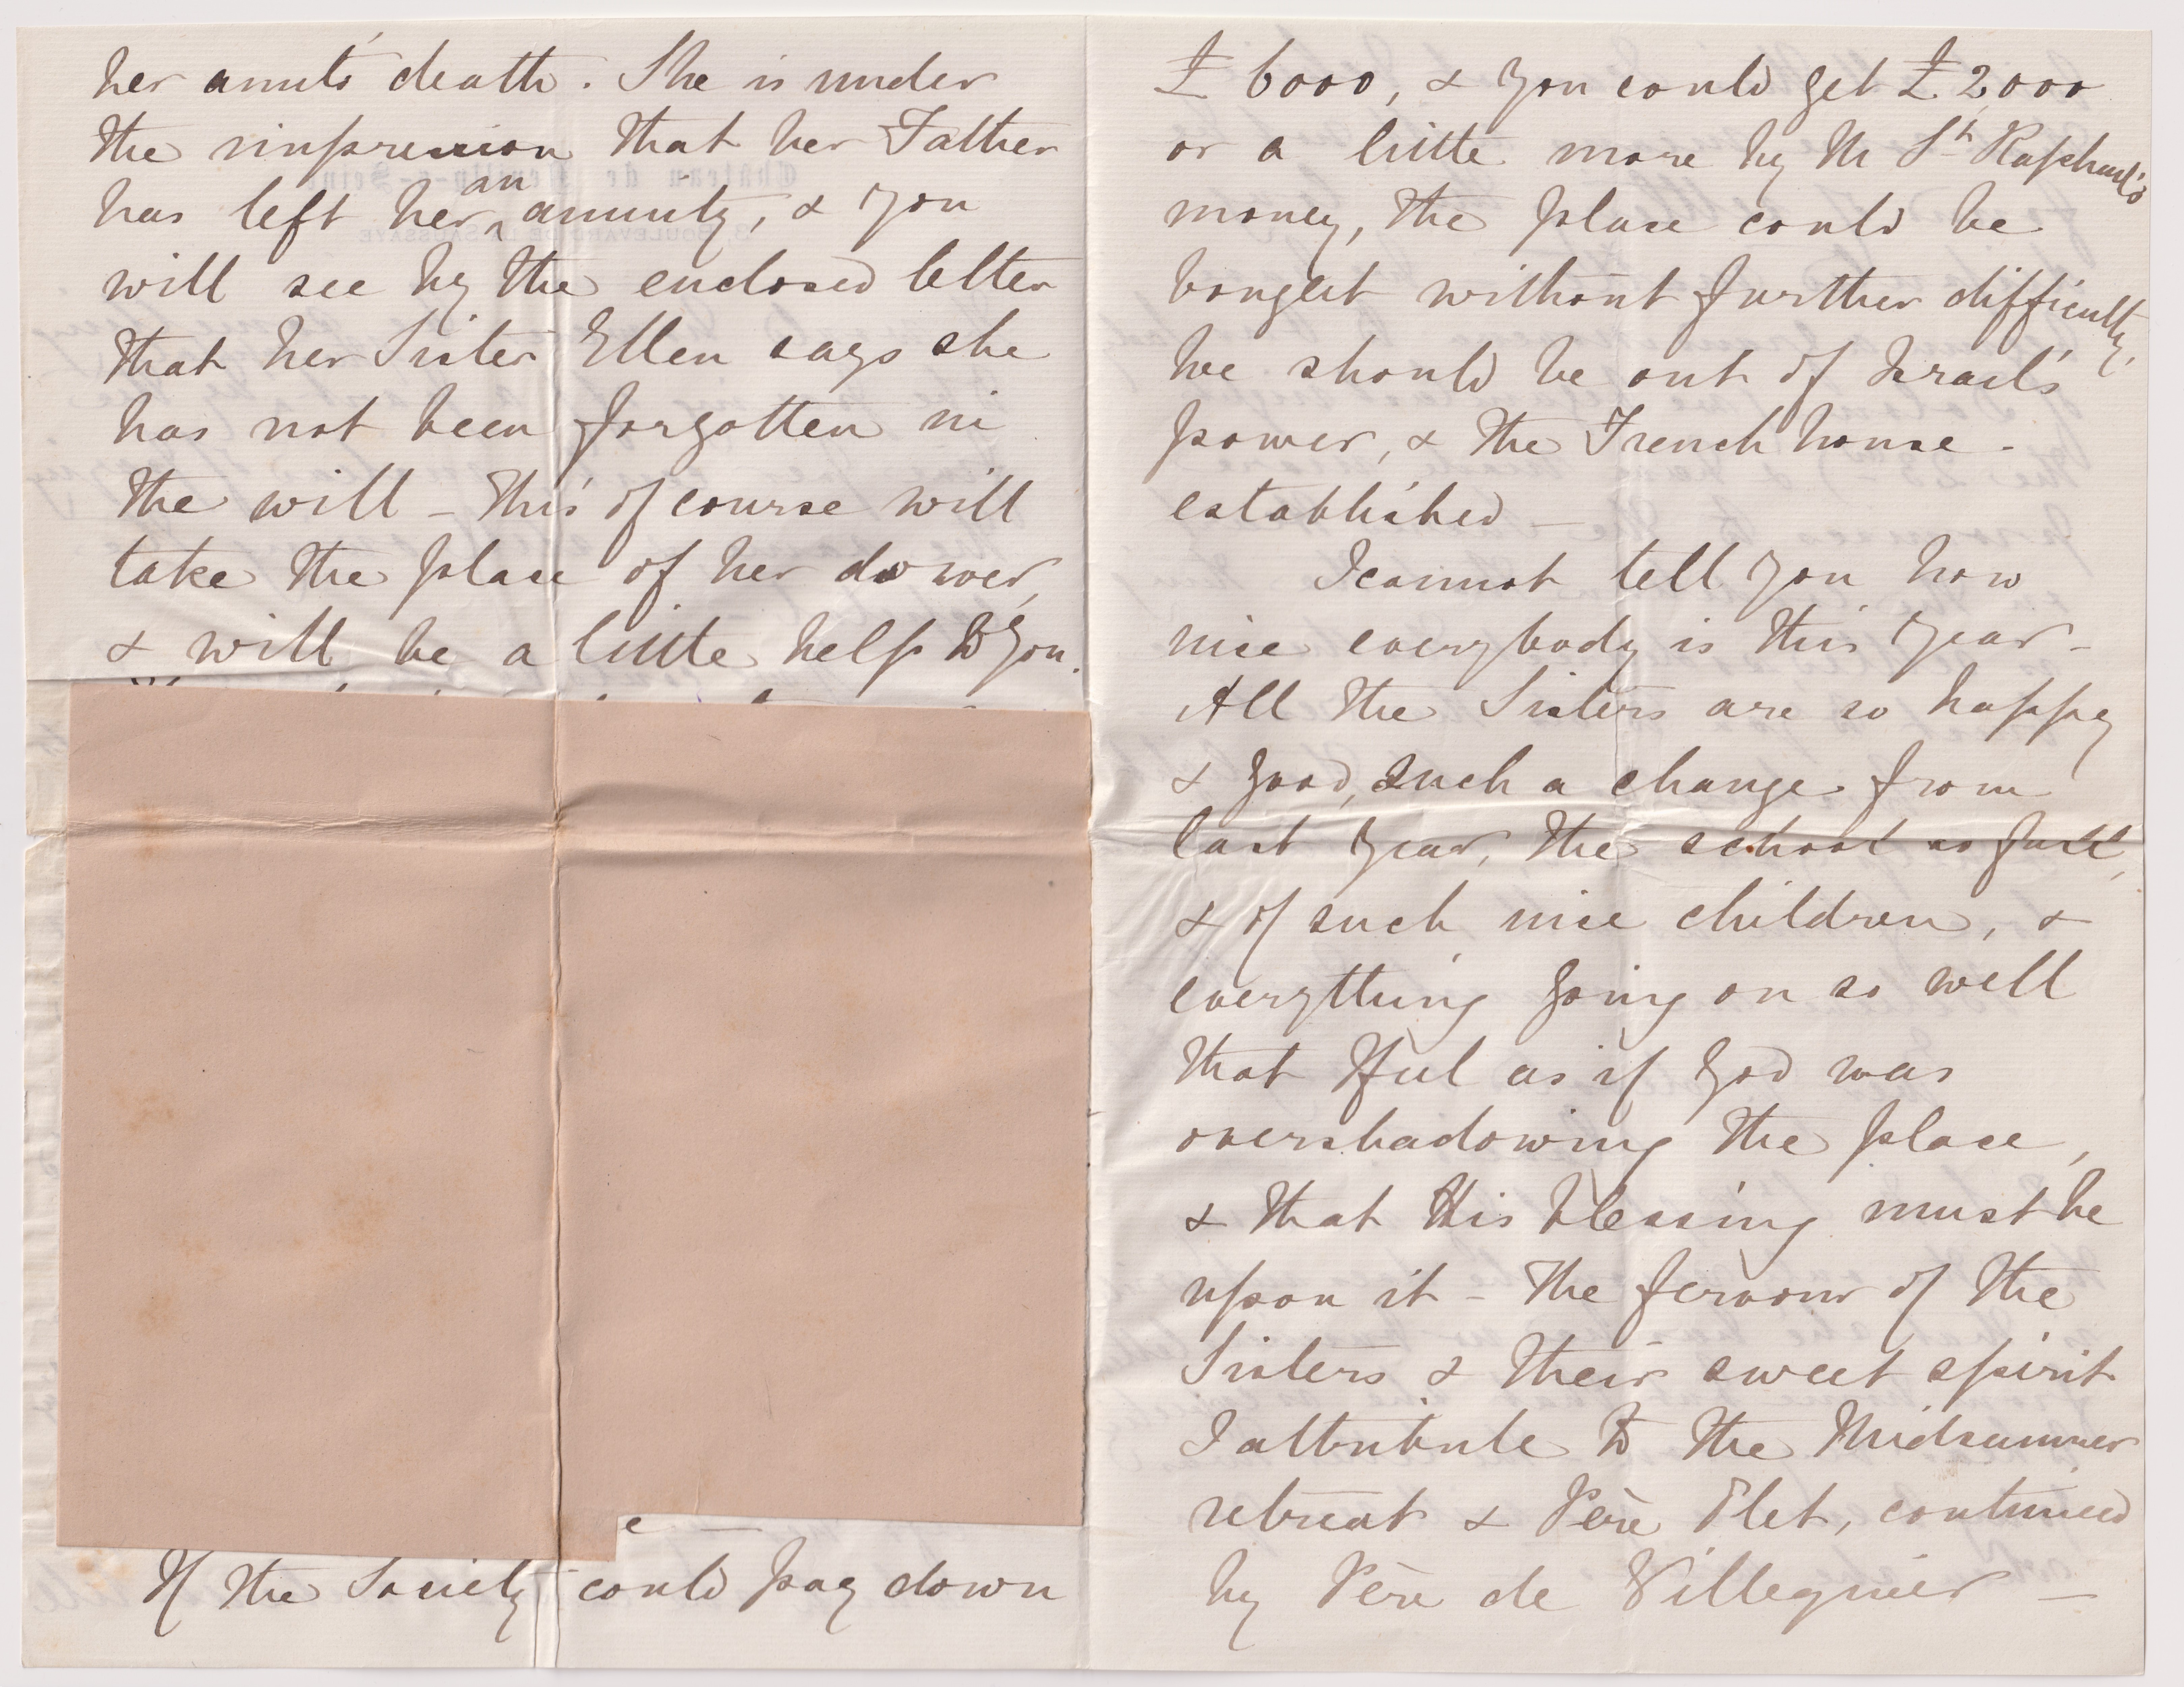 her aunt's death. She is under
the impression that her Father
has left her an annuity, & you
will see by the enclosed letter
that her Sister Ellen says she
has not been forgotten in
the will – this of course will
take the place of her dower,
& will be a little help to you.
If the Society could pay down
£6000, & you could get £2000
or a little more by M St Raphael's
money, the place could be
bought without further difficulty,
we should be out of Israel's
power, & the French house
established –
I cannot tell you how
nice everybody is this year –
All the Sisters are so happy
& good, such a change from
last year, the school so full,
& of such nice children, &
everything going on so well
that I feel as if God was
overshadowing the place,
& that His blessing must be
upon it – The fervour of the
Sisters & their sweet spirit
I attribute to the Midsummer
retreat & Père Olet, continued
by Père de Villequier –